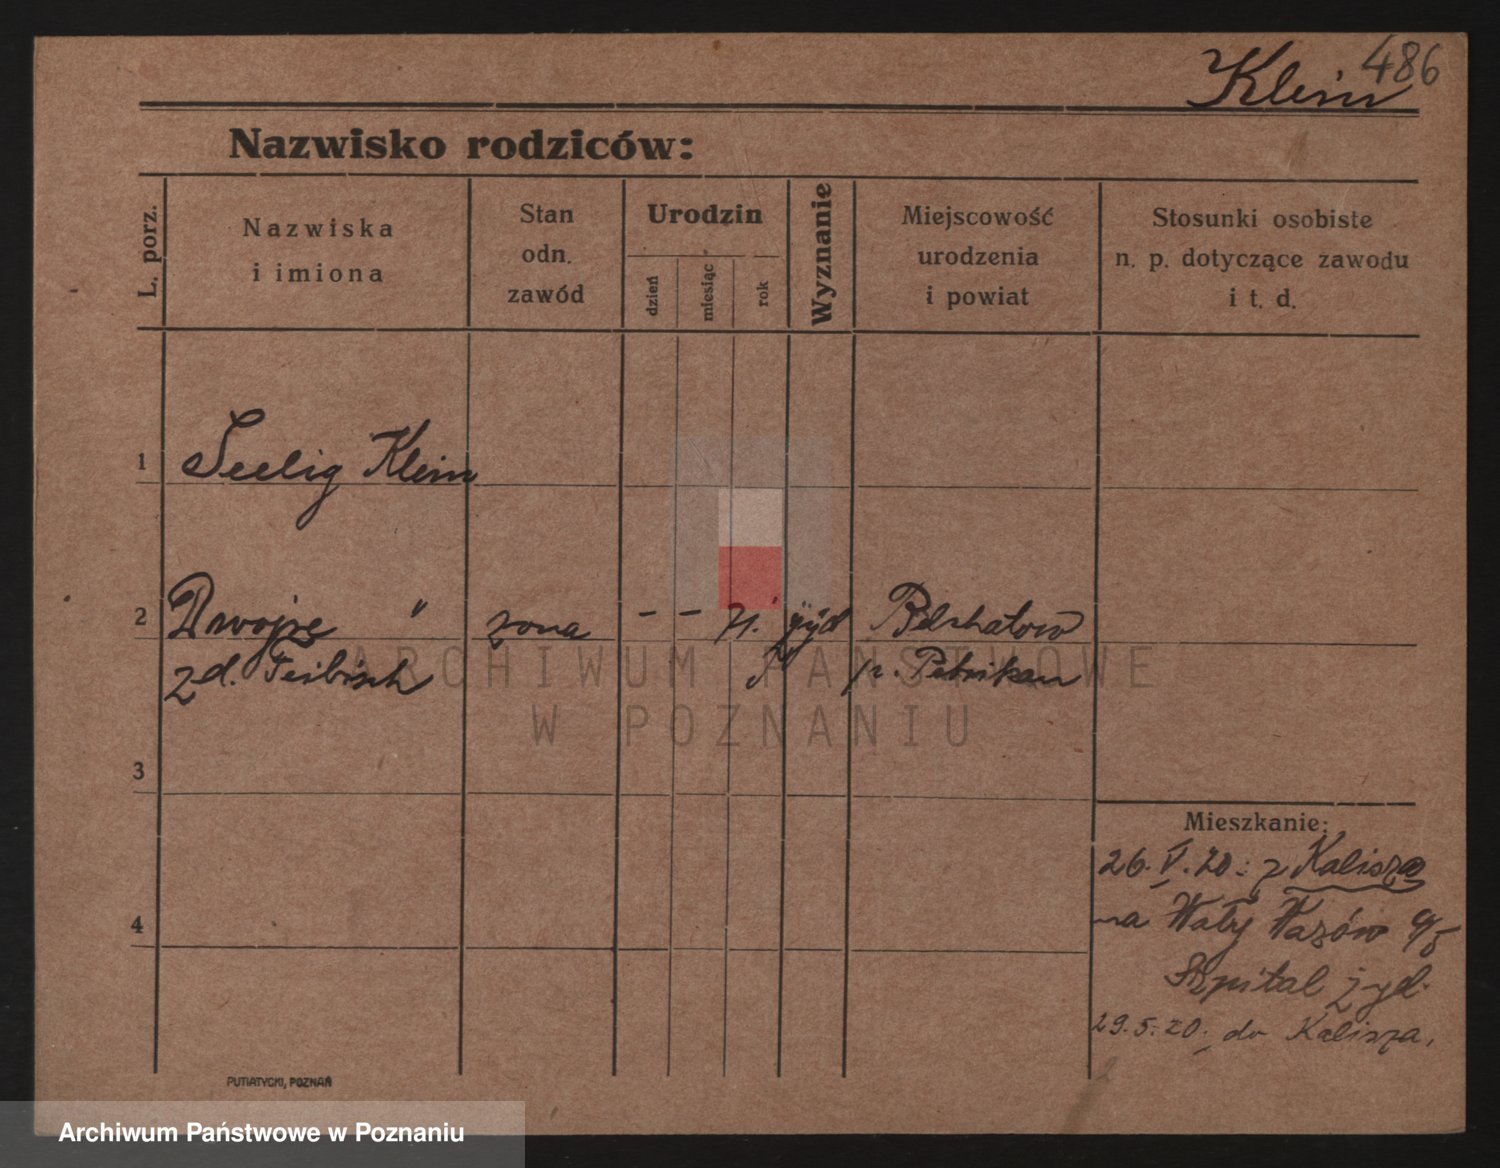 486
Klein
Nazwisko rodziców:
L. porz.
Nazwiska
i imiona
Stan
odn.
zawód
Urodzin
dzień
miesiąc
rok
Wyznanie
Miejscowość
urodzenia
i powiat
Stosunki osobiste
n. p. dotyczące zawodu
i t. d.
1 Seelig Klein
2 " żona – – żyd Belchatow
zd. p. Petrikau
3
4
Mieszkanie:
26.V.20: z Kalisza
na Wały Wazów 9/5
Szpital żyd.
29.5.20. do Kalisza.
PUTIATYCKI, POZNAŃ
ARCHIWUM PAŃSTWOWE
W POZNANIU
Archiwum Państwowe w Poznaniu